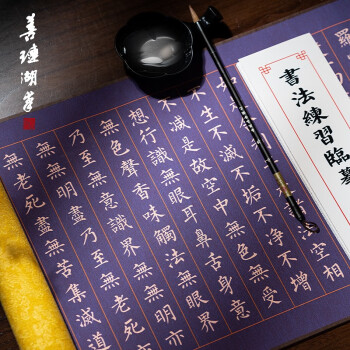 善璉湖筆
書法練習臨摹
空相
不生不滅不垢不淨不增
不減是故空中無色無受
想行識無眼耳鼻舌身意
無色聲香味觸法無眼界
乃至無意識界無無明亦
無無明盡乃至無老死亦
無老死盡無苦集滅道